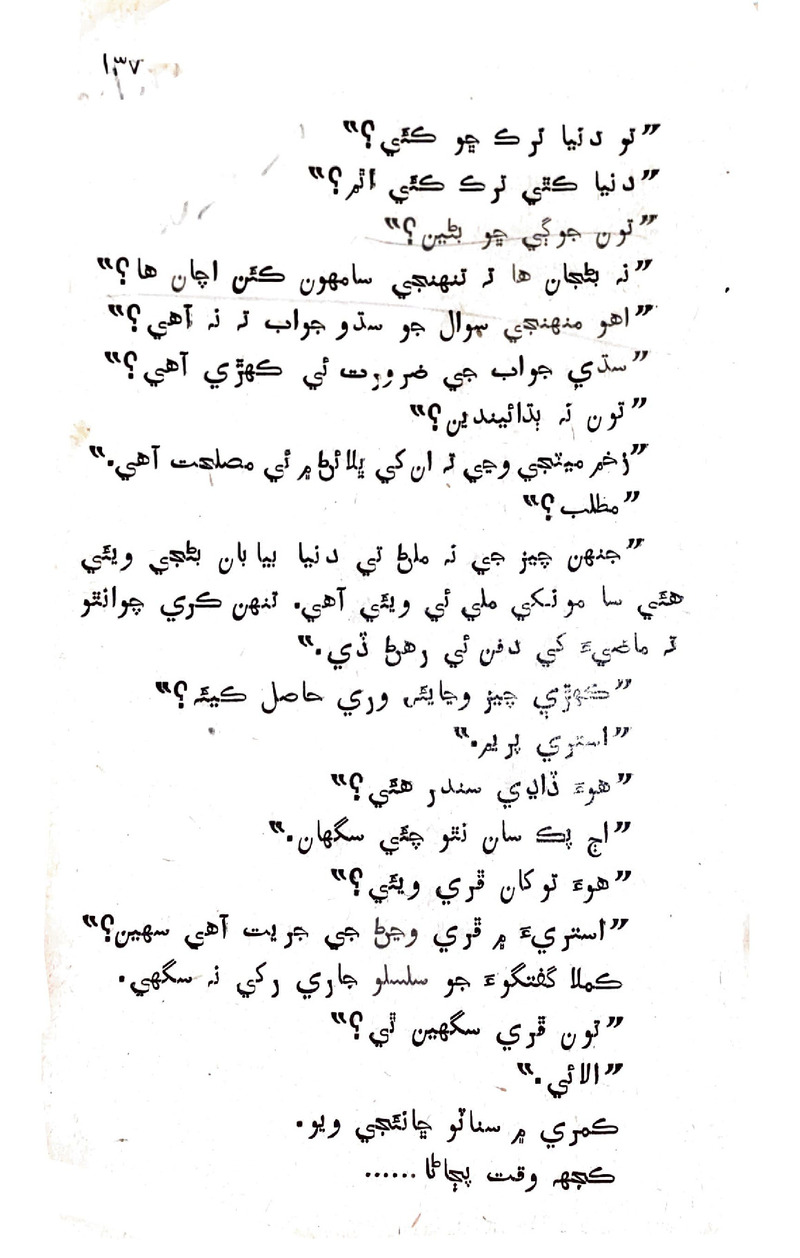 ١٣٧
”تو دنيا ترڪ ڇو ڪئي؟“
”دنيا ڪٿي ترڪ ڪئي اٿم؟“
”تون جوڳي ڇو بڻين؟“
”نہ بڻجان ها تہ تنهنجي سامهون ڪئن اچان ها؟“
”اهو منهنجي سوال جو سڌو جواب تہ نہ آهي؟“
”سڌي جواب جي ضرورت ئي ڪهڙي آهي؟“
”تون نہ ٻڌائيندين؟“
”زخم ميٽجي وڃي تہ ان کي ڀلائڻ ۾ ئي مصلحت آهي.“
”مطلب؟“
”جنهن چيز جي نہ ملڻ تي دنيا بيابان بڻجي ويئي
هئي سا مونکي ملي ئي ويئي آهي. تنهن ڪري چوانٿو
تہ ماضيءَ کي دفن ئي رهڻ ڏي.“
”ڪهڙي چيز وڃايئي وري حاصل ڪيئہ؟“
”استري پريم.“
”هوءَ ڏاڍي سندر هئي؟“
”اڄ پڪ سان نٿو چئي سگهان.“
”هوءَ توکان ڦري ويئي؟“
”استريءَ ۾ ڦري وڃڻ جي جريت آهي سهين؟“
ڪملا گفتگوءَ جو سلسلو جاري رکي نہ سگهي.
”تون ڦري سگهين ٿي؟“
”الائي.“
ڪمري ۾ سناٽو ڇانئجي ويو.
ڪجهہ وقت پڄاڻا......